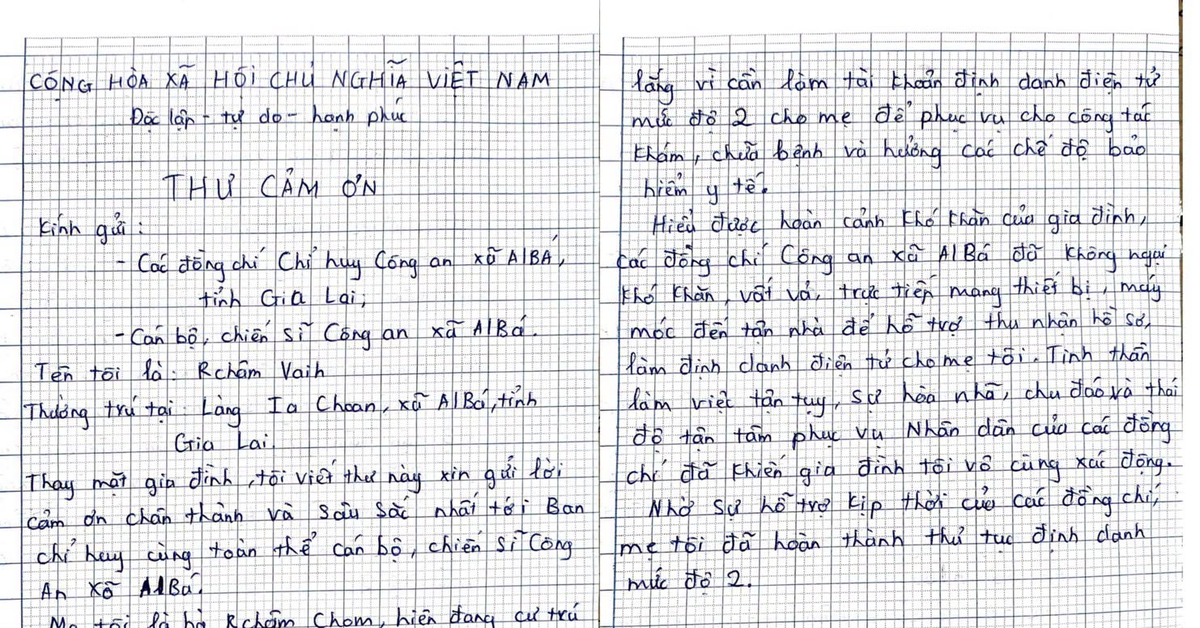 CỘNG HÒA XÃ HỘI CHỦ NGHĨA VIỆT NAM
Độc lập - tự do - hạnh phúc
THƯ CẢM ƠN
Kính gửi :
- Các đồng chí Chỉ huy Công an xã AlBÁ,
tỉnh Gia Lai;
- Cán bộ, chiến sĩ Công an xã AlBá.
Tên tôi là: Rchâm Vaih
Thường trú tại: Làng Ia Choan, xã AlBá, tỉnh
Gia Lai.
Thay mặt gia đình, tôi viết thư này xin gửi lời
cảm ơn chân thành và sâu sắc nhất tới Ban
chỉ huy cùng toàn thể cán bộ, chiến sĩ Công
An xã AlBá.
Mẹ tôi là bà Rchâm Chom, hiện đang cư trú
lắng vì cần làm tài khoản định danh điện tử
mức độ 2 cho mẹ để phục vụ cho công tác
khám, chữa bệnh và hưởng các chế độ bảo
hiểm y tế.
Hiểu được hoàn cảnh khó khăn của gia đình,
các đồng chí Công an xã AlBá đã không ngại
khó khăn, vất vả, trực tiếp mang thiết bị, máy
móc đến tận nhà để hỗ trợ thu nhận hồ sơ,
làm định danh điện tử cho mẹ tôi. Tinh thần
làm việc tận tụy, sự hòa nhã, chu đáo và thái
độ tận tâm phục vụ Nhân dân của các đồng
chí đã khiến gia đình tôi vô cùng xác động.
Nhờ sự hỗ trợ kịp thời của các đồng chí,
mẹ tôi đã hoàn thành thủ tục định danh
mức độ 2.